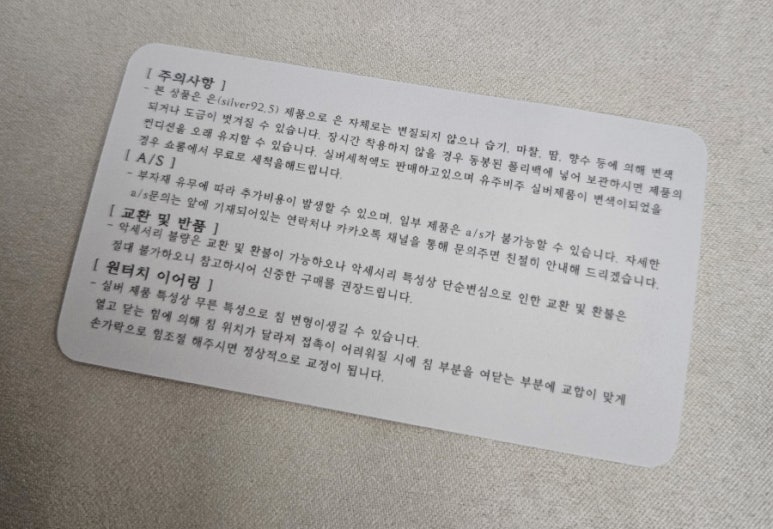 [ 주의사항 ]
- 본 상품은 은(silver92.5) 제품으로 은 자체로는 변질되지 않으나 습기, 마찰, 땀, 향수 등에 의해 변색
되거나 도금이 벗겨질 수 있습니다. 장시간 착용하지 않을 경우 동봉된 폴리백에 넣어 보관하시면 제품의
컨디션을 오래 유지할 수 있습니다. 실버세척액도 판매하고있으며 유주비주 실버제품이 변색이되었을
경우 쇼룸에서 무료로 세척을해드립니다.
[ A/S ]
- 부자재 유무에 따라 추가비용이 발생할 수 있으며, 일부 제품은 a/s가 불가능할 수 있습니다. 자세한
a/s문의는 앞에 기재되어있는 연락처나 카카오톡 채널을 통해 문의주면 친절히 안내해 드리겠습니다.
[ 교환 및 반품 ]
- 악세서리 불량은 교환 및 환불이 가능하오나 악세서리 특성상 단순변심으로 인한 교환 및 환불은
절대 불가하오니 참고하시어 신중한 구매를 권장드립니다.
[ 원터치 이어링 ]
- 실버 제품 특성상 무른 특성으로 침 변형이생길 수 있습니다.
열고 닫는 힘에 의해 침 위치가 달라져 접촉이 어려워질 시에 침 부분을 여닫는 부분에 교합이 맞게
손가락으로 힘조절 해주시면 정상적으로 교정이 됩니다.